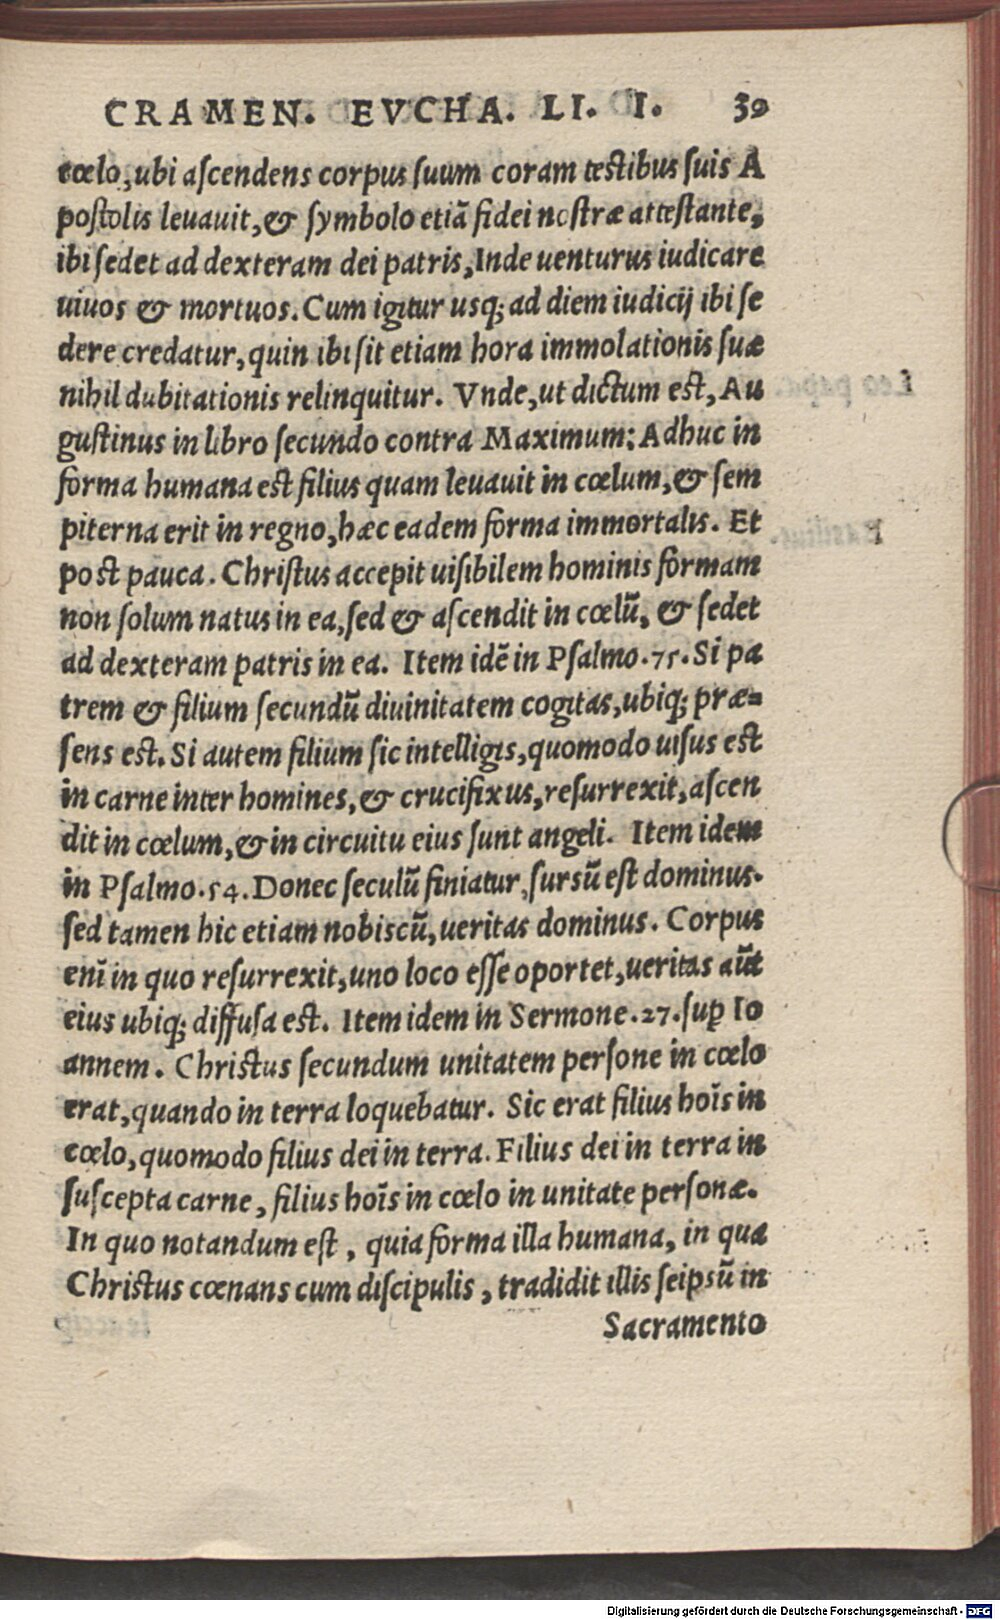 CRAMEN. EVCHA. LI. I. 39
cœlo, ubi ascendens corpus suum coram testibus suis A
postolis leuauit, & symbolo etiã fidei nostræ attestante,
ibi sedet ad dexteram dei patris, Inde uenturus iudicare
uiuos & mortuos. Cum igitur usq; ad diem iudicij ibi se
dere credatur, quin ibi sit etiam hora immolationis suæ
nihil dubitationis relinquitur. Vnde, ut dictum est, Au
gustinus in libro secundo contra Maximum: Adhuc in
forma humana est filius quam leuauit in cœlum, & sem
piterna erit in regno, hæc eadem forma immortalis. Et
post pauca. Christus accepit uisibilem hominis formam
non solum natus in ea, sed & ascendit in cœlũ, & sedet
ad dexteram patris in ea. Item idẽ in Psalmo .75. Si pa
trem & filium secundũ diuinitatem cogitas, ubiq; præ=
sens est. Si autem filium sic intelligis, quomodo uisus est
in carne inter homines, & crucifixus, resurrexit, ascen
dit in cœlum, & in circuitu eius sunt angeli. Item idem
in Psalmo .54. Donec seculũ finiatur, sursũ est dominus.
sed tamen hic etiam nobiscũ, ueritas dominus. Corpus
enĩ in quo resurrexit, uno loco esse oportet, ueritas aũt
eius ubiq; diffusa est. Item idem in Sermone .27. suꝑ Io
annem. Christus secundum unitatem persone in cœlo
erat, quando in terra loquebatur. Sic erat filius hoĩs in
cœlo, quomodo filius dei in terra. Filius dei in terra in
suscepta carne, filius hoĩs in cœlo in unitate personæ.
In quo notandum est, quia forma illa humana, in qua
Christus cœnans cum discipulis, tradidit illis seipsũ in
Sacramento
Digitalisierung gefördert durch die Deutsche Forschungsgemeinschaft - DFG